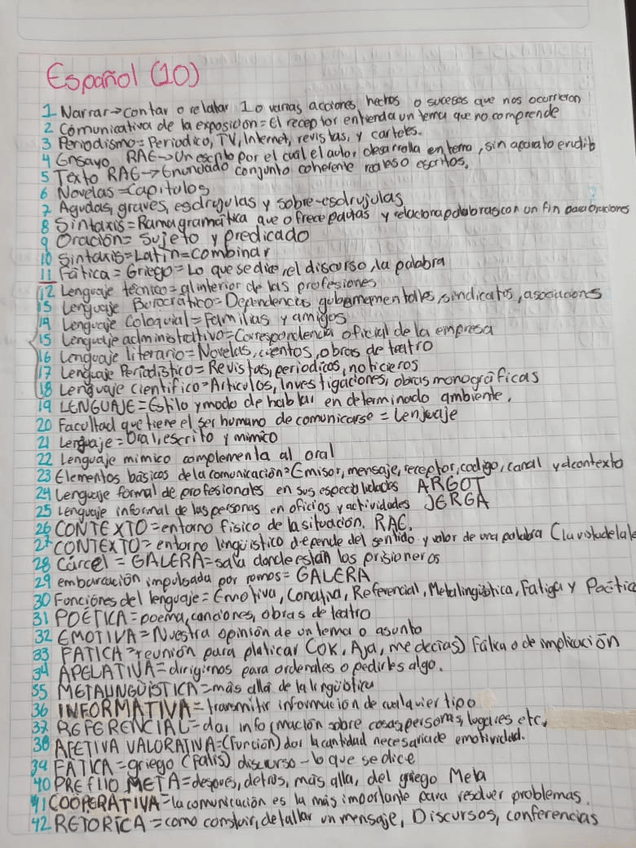 Español (10)
1 Narrar→contar o relatar 1 o varias acciones, hechos o sucesos que nos ocurrieron
2 Comunicativa de la exposicion=El receptor entienda un tema que no comprende
3 Periodismo=Periodico, TV, Internet, revistas, y carteles.
4 Ensayo RAE→Un escrito por el cual el autor desarrolla en tema, sin aparato erudito
5 Texto RAE→Enunciado conjunto coherente escritos.
6 Novelas=Capitulos
7 Agudas, graves, esdrujulas y sobre-esdrujulas
8 Sintaxis=Rama gramática que ofrece pautas y relaciona palabras con un fin para oraciones
9 Oración= Sujeto y predicado
10 Sintaxis=Latín=combinar
11 Fática=Griego=Lo que se dice, el discurso, la palabra
12 Lenguaje técnico=al interior de las profesiones
13 Lenguaje Burocrático=Dependencias gubernamentales, sindicatos, asociaciones
14 Lenguaje Coloquial=Familias y amigos
15 Lenguaje administrativo=Correspondencia oficial de la empresa
16 Lenguaje literario=Novelas, cuentos, obras de teatro
17 Lenguaje Periodistico=Revistas, periodicos, noticieros
18 Lenguaje cientifico=Articulos, Investigaciones, obras monográficas
19 LENGUAJE=Estilo y modo de hablar en determinado ambiente.
20 Facultad que tiene el ser humano de comunicarse = Lenguaje
21 Lenguaje=Oral, escrito y mimico
22 Lenguaje mimico complementa al oral
23 Elementos básicos de la comunicación=Emisor, mensaje, receptor, codigo, canal y contexto
24 Lenguaje formal de profesionales en sus especialidades ARGOT
25 Lenguaje informal de las personas en oficios y actividades JERGA
26 CONTEXTO=entorno físico de la situación. RAE.
27 CONTEXTO=entorno lingüistico depende del sentido y valor de una palabra
28 Cárcel = GALERA=sala donde están los prisioneros
29 embarcación impulsada por remos=GALERA
30 Funciones del lenguaje=Emotiva, Conativa, Referencial, Metalingüistica, Fatiga y Poética
31 POETICA=poema, canciones, obras de teatro
32 EMOTIVA=Nuestra opinión de un tema o asunto
33 FATICA=reunión para platicar (OK, Aja, me decias) Fática o de implicación
34 APELATIVA=dirigirnos para ordenales o pedirles algo.
35 METALINGÜISTICA=más allá de la lingüistica
36 INFORMATIVA=transmitir informacion de cualquier tipo
37 REFERENCIAL=dar información sobre cosas, personas, lugares etc.
38 AFETIVA VALORATIVA=(Función) dar la cantidad necesaria de emotividad.
39 FATICA=griego (Fatis) discurso-lo que se dice
40 PREFIJO META=despues, detrás, más alla, del griego Meta
41 COOPERATIVA=la comunicación es la más importante para resolver problemas.
42 RETORICA=como construir, detallar un mensaje, Discursos, conferencias